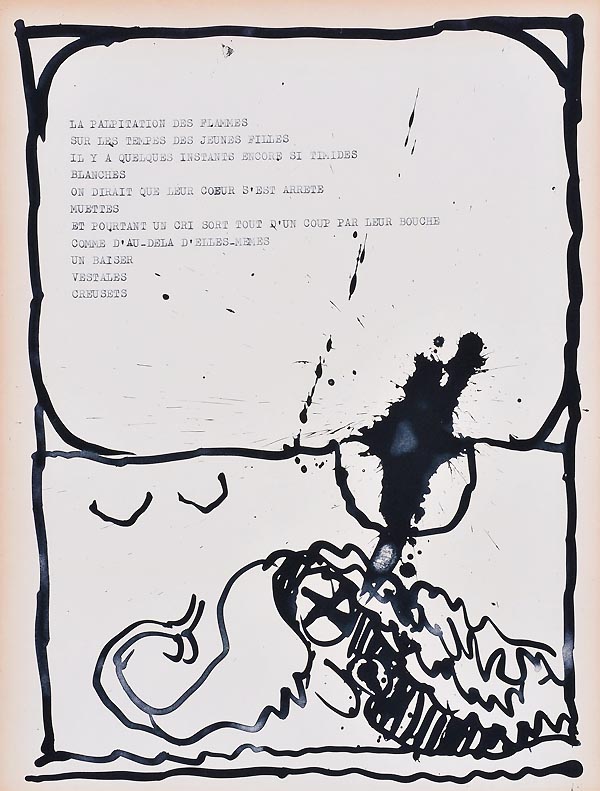 LA PALPITATION DES FLAMMES
SUR LES TEMPES DES JEUNES FILLES
IL Y A QUELQUES INSTANTS ENCORE SI TIMIDES
BLANCHES
ON DIRAIT QUE LEUR COEUR S'EST ARRETE
MUETTES
ET POURTANT UN CRI SORT TOUT D'UN COUP PAR LEUR BOUCHE
COMME D'AU-DELA D'ELLES-MEMES
UN BAISER
VESTALES
CREUSETS